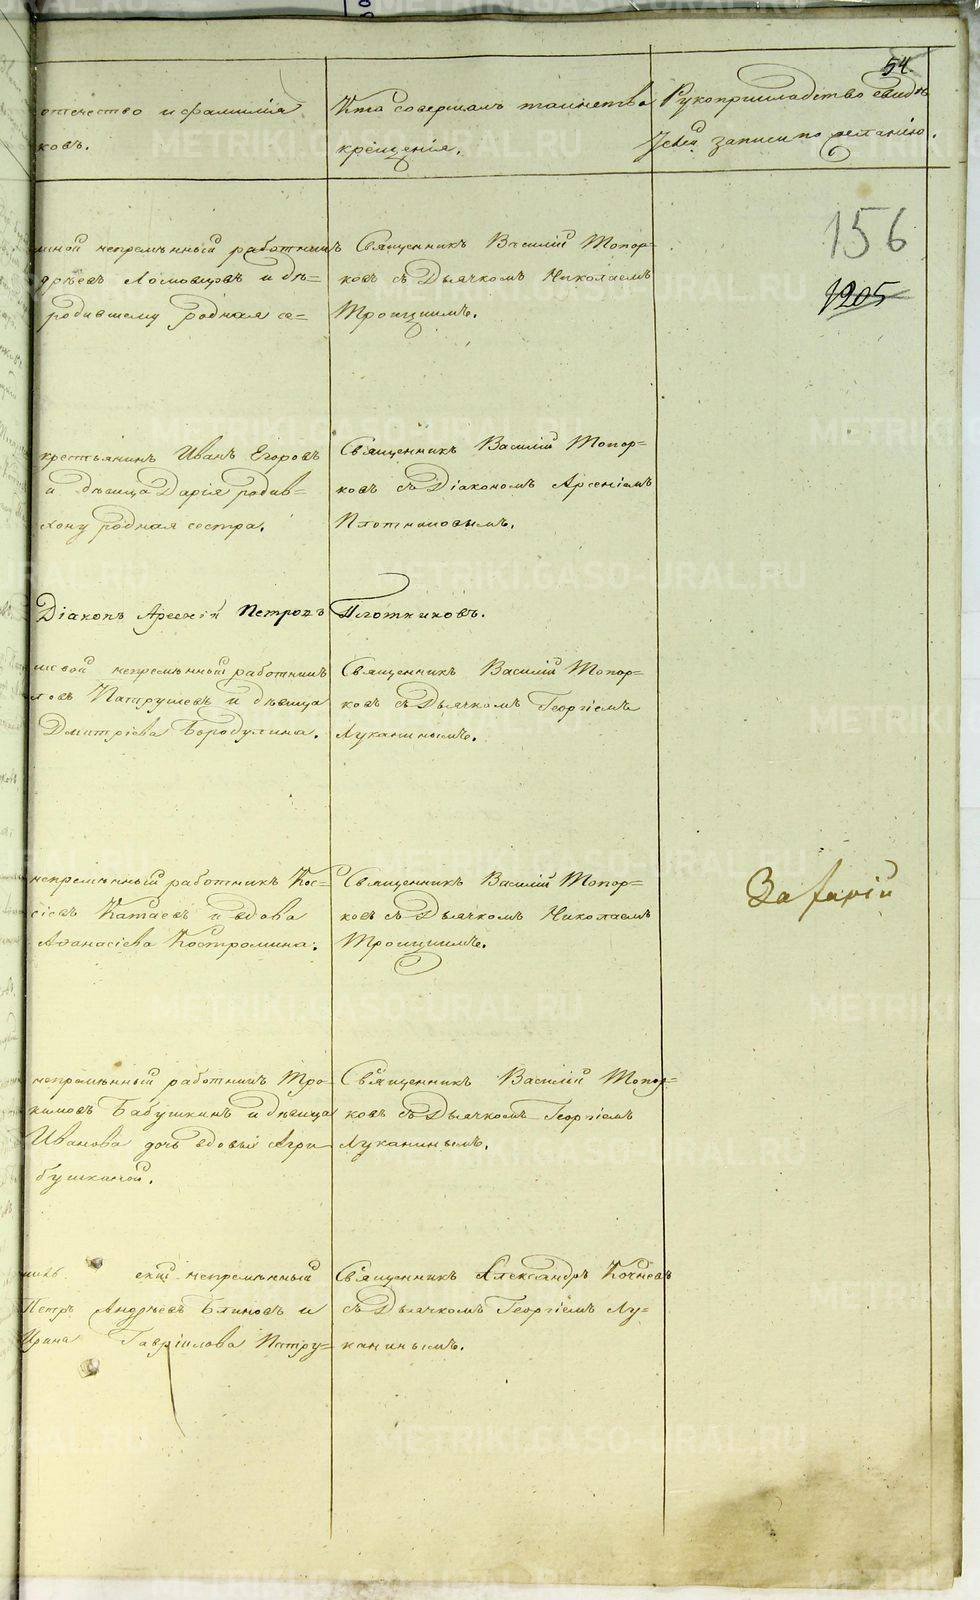 54.
отечество и фамилія
ковъ.
Кто совершалъ таинство
крещенія.
Рукоприкладство свидѣ
записи по желанію.
156
1205
непремѣнный работникъ
Ломовцовъ и дѣ-
родившему родная се-
Священникъ Василій Топор-
ковъ съ Дьячкомъ Николаемъ
Троицкимъ.
крестьянинъ Иванъ Егоровъ
и дѣвица Дарія родив-
родная сестра.
Священникъ Василій Топор-
ковъ съ Діакономъ Арсеніемъ
Плотниковымъ.
Діаконъ Арсеній Петровъ Плотниковъ.
непремѣнный работникъ
Патрушевъ и дѣвица
Дмитріева Бородулина.
Священникъ Василій Топор-
ковъ съ Дьячкомъ Георгіемъ
Луканинымъ.
непремѣнный работникъ Кос-
Катаевъ и вдова
Аѳанасіева Костромина.
Священникъ Василій Топор-
ковъ съ Дьячкомъ Николаемъ
Троицкимъ.
непремѣнный работникъ Тро-
химовъ Бабушкинъ и дѣвица
Иванова дочь вдовы Агри
бушкиной.
Священникъ Василій Топор-
ковъ съ Дьячкомъ Георгіемъ
Луканинымъ.
непремѣнный
Петръ Андрѣевъ Блиновъ и
Ирина Гавріилова Патру-
Священникъ Александръ Кочневъ
съ Дьячкомъ Георгіемъ Лу-
канинымъ.
METRIKI.GASO-URAL.RU